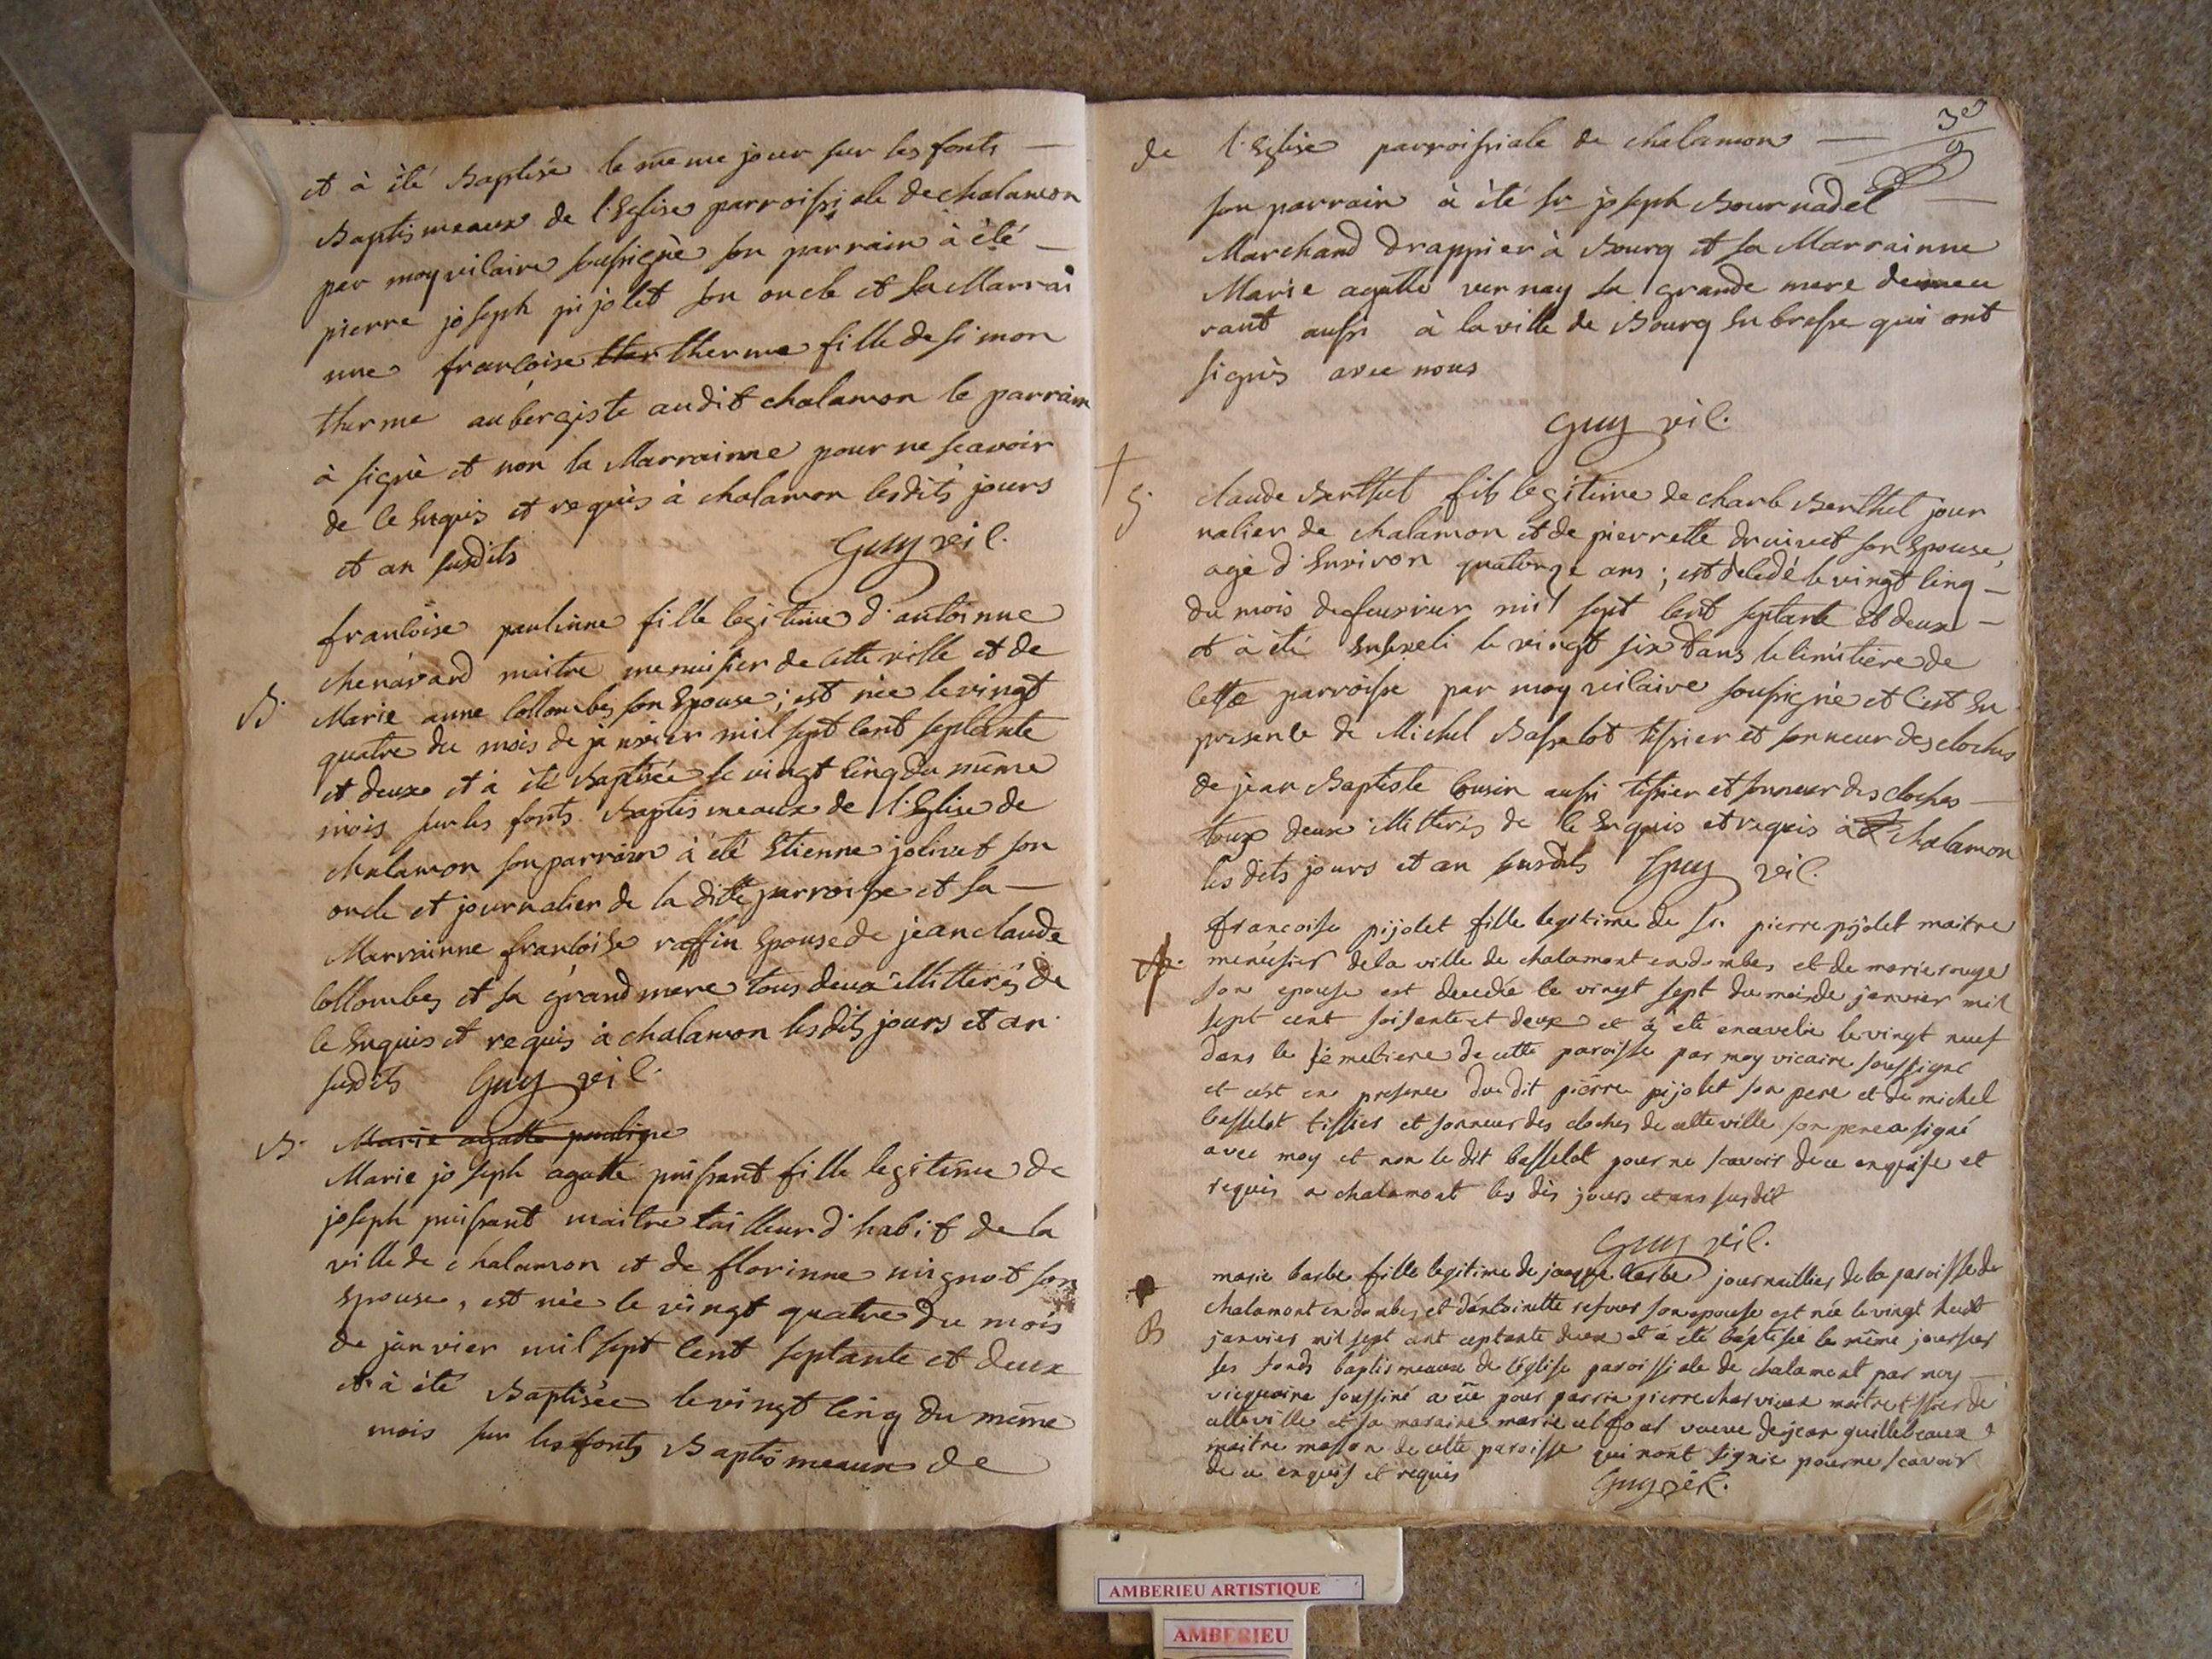 et à èté Baptisé le même jour sur les fonts —
Baptismeaux de l'Eglise parroissiale de chalamon
par moy vicaire soussigné son parrain à èté —
pierre joseph pijolet son oncle et sa Marrai
nne francoise ther therme fille de simon
therme aubergiste audit chalamon le parrain
à signè et non la Marrainne pour ne scavoir
de ce Enquis et requis à chalamon lesdits jours
et an susdits Guy vic.
francoise paulinne fille legitime d'antoinne
chenavard maitre menuisier de cette ville et de
B. Marie anne Collombes son Epouse; est née le vingt
quatre du mois de janvier mil sept cent septante
et deux et à èté Baptisée le vingt cinq du même
mois sur les fonts Baptismeaux de l'Eglise de
chalamon son parrain à été Etienne jolivet son
oncle et journalier de la ditte parroisse et sa —
Marrainne francoise raffin Epouse de jean claude
Collombes et sa grand mere tous deux illitterés de
ce Enquis et requis à chalamon lesdits jours et an
susdits Guy vic.
B. Marie agatte paulinne
Marie joseph agatte puissant fille legitime de
joseph puissant maitre tailleur d'habit de la
ville de chalamon et de florinne mignot son
Epouse, est née le vingt quatre du mois
de janvier mil sept cent septante et deux
et à été Baptisée le vingt cinq du même
mois sur les fonts Baptismeaux de
3e
de l'Eglise parroissiale de chalamon —
son parrain à été sr joseph Bournadet —
Marchand Drappier à Bourg et sa Marrainne
Marie agatte vernay sa grande mere demeu
rant aussi à la ville de Bourg En bresse qui ont
signés avec nous
Guy vic.
S. claude Berthet fils legitime de charle Berthet jour
nalier de chalamon et de pierrette Draivet son Epouse,
agé d'Environ quatorze ans; est décédé le vingt cinq —
du mois de feuvrier mil sept cent septante et deux —
et à été Enseveli le vingt six dans le cimitiere de
cette parroisse par moy vicaire soussigné et c'est En
presence de Michel Basselot tissier et sonneur des cloches
de jean Baptiste Cousin aussi tissier et sonneur des cloches —
tous deux illitterés de ce Enquis et requis à chalamon
les dits jours et an susdits Guy vic.
francoise pijolet fille legitime de sr. pierre pijolet maitre
menusier de la ville de chalamont en dombes et de marie rouge
son epouse est decedée le vingt sept du mois de janvier mil
sept cent soisante et deux et a été ensevelie le vingt neuf
dans le semetiere de cette paroisse par moy vicaire soussigné
et c'est en presence du dit pierre pijolet son pere et de michel
basselot tissier et sonneur des cloches de cette ville son pere a signé
avec moy et non le dit basselot pour ne scavoir de ce enquise et
requis a chalamont les dis jours et ans susdit
Guy vic.
marie barbe fille legitime de jacque barbe journaillier de la paroisse de
chalamont en dombes et d'antoinette son epouse est née le vingt huit
B janvier mil sept cent ceptante deux et a été baptisee le même jour sur
les fonds baptismeaux de l'église paroissiale de chalamont par moy —
vicquaire soussiné a été pour parrin pierre charvieux maitre tissier de
cette ville et sa maraine marie veuve de jean guillebeaux
maitre masson de cette paroisse qui n'ont signié pour ne scavoir
de ce enquis et requis Guy vic.
AMBERIEU ARTISTIQUE
AMBERIEU